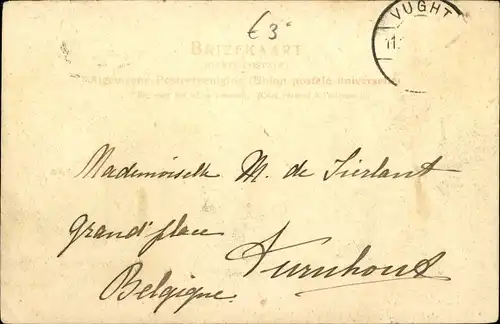 €3
VUGHT
11.
BRIEFKAART
Algemeene Postvereeniging (Union postale universelle)
Mademoiselle M. de Fierlant
Grand'place
Turnhout
Belgique.